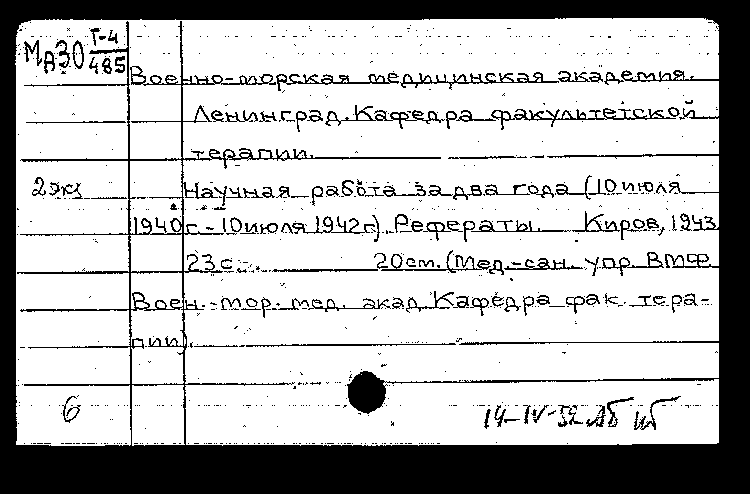 МА30 Г-4/485
Военно-морская медицинская академия.
Ленинград. Кафедра факультетской
терапии.
2 экз
Научная работа за два года (10 июля
1940 г. - 10 июля 1942 г.). Рефераты. Киров, 1943
23 с. 20 см. (Мед.-сан. упр. ВМФ.
Воен.-мор. мед. акад. Кафедра фак. тера-
пии).
6
14-IV-52